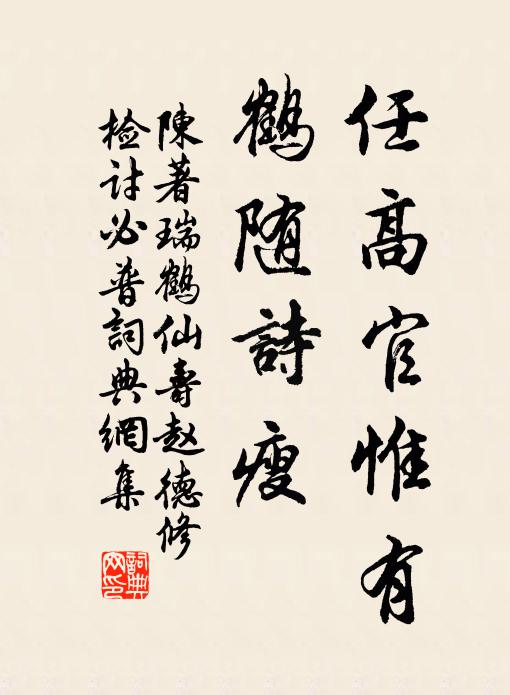 任高官惟有
鹤随詩瘦
陳著瑞鶴仙壽赵德修
检討必普詞典網集
詞典网印